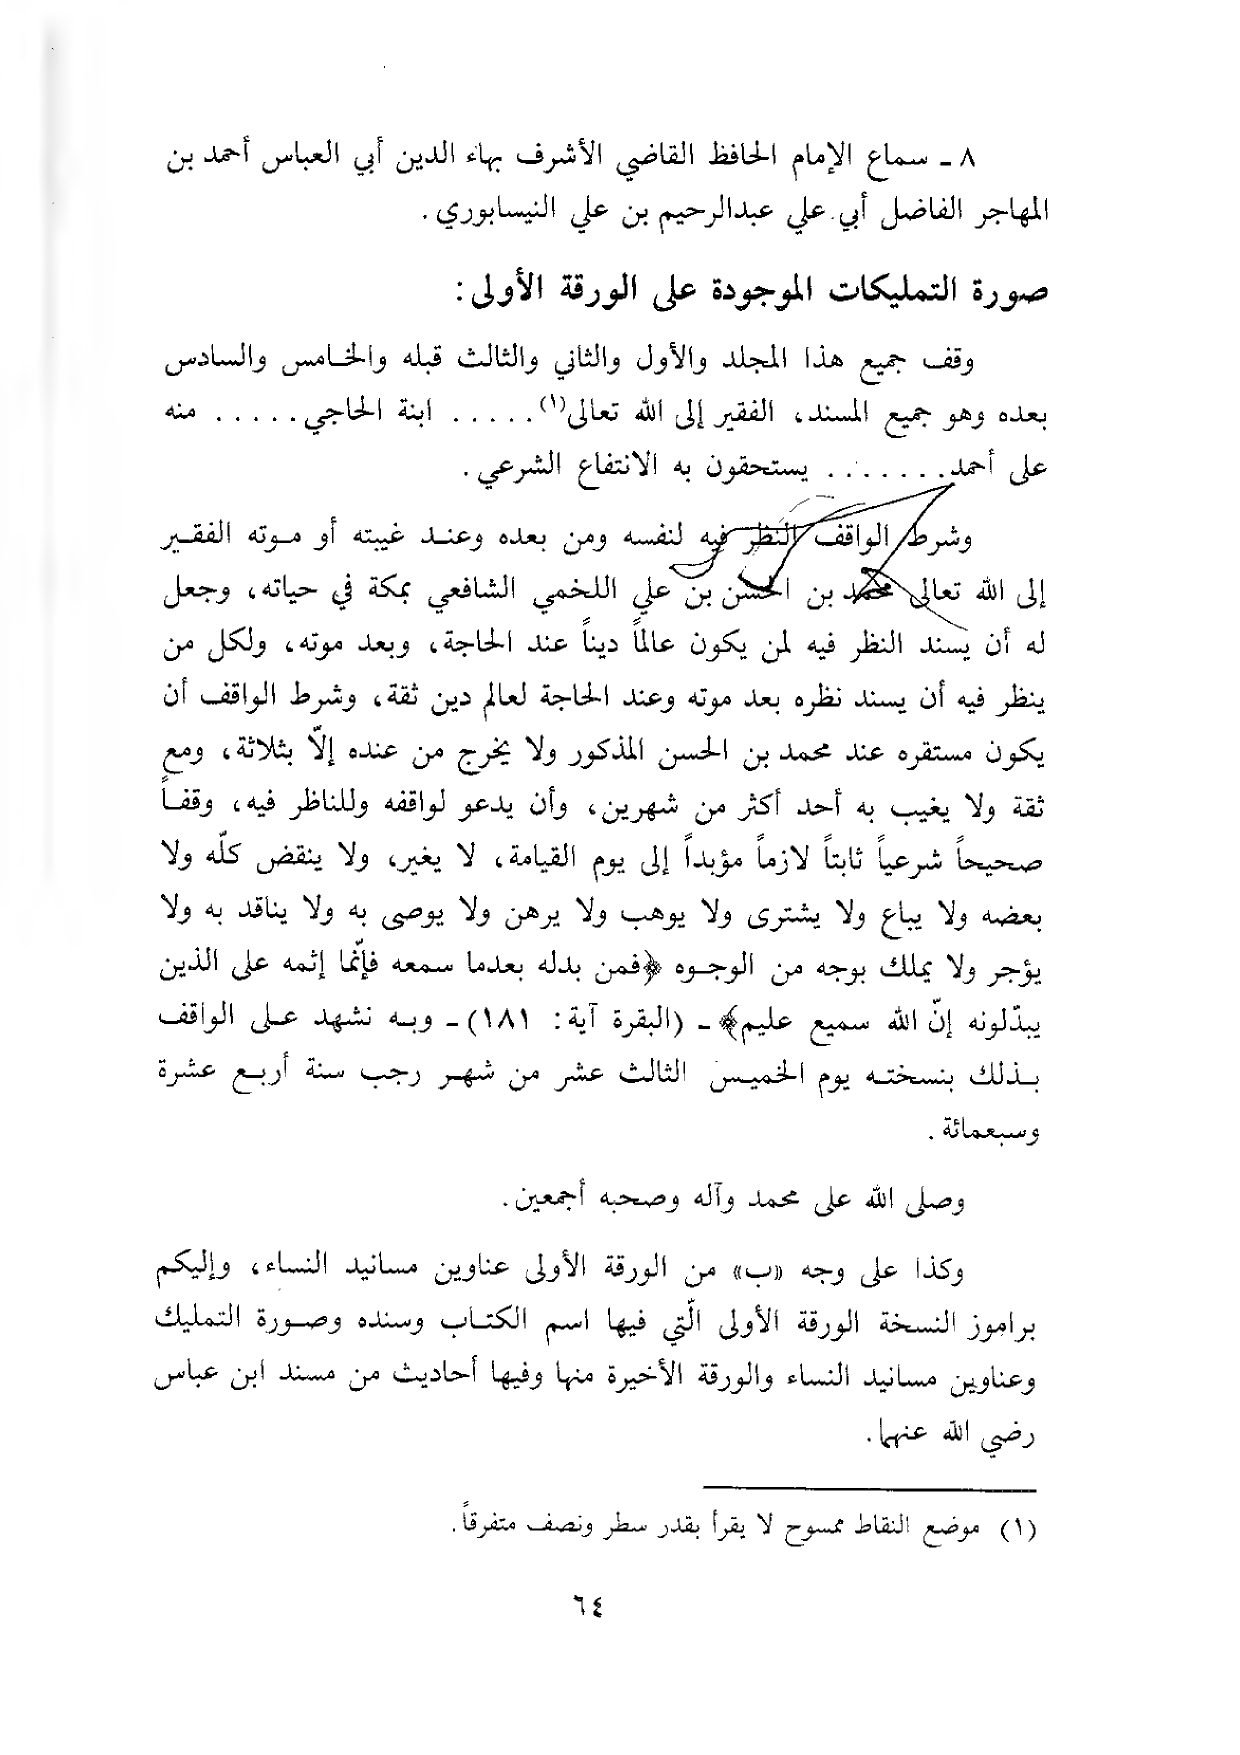 ٨ ـ سماع الإمام الحافظ القاضي الأشرف بهاء الدين أبي العباس أحمد بن
المهاجر الفاضل أبي علي عبدالرحيم بن علي النيسابوري.
صورة التمليكات الموجودة على الورقة الأولى:
وقف جميع هذا المجلد والأول والثاني والثالث قبله والخامس والسادس
بعده وهو جميع المسند، الفقير إلى الله تعالى(١)..... ابنة الحاجي..... منه
على أحمد....... يستحقون به الانتفاع الشرعي.
وشرط الواقف النظر فيه لنفسه ومن بعده وعند غيبته أو موته الفقير
إلى الله تعالى محمد بن الحسن بن علي اللخمي الشافعي بمكة في حياته، وجعل
له أن يسند النظر فيه لمن يكون عالماً ديناً عند الحاجة، وبعد موته، ولكل من
ينظر فيه أن يسند نظره بعد موته وعند الحاجة لعالم دين ثقة، وشرط الواقف أن
يكون مستقره عند محمد بن الحسن المذكور ولا يخرج من عنده إلاّ بثلاثة، ومع
ثقة ولا يغيب به أحد أكثر من شهرين، وأن يدعو لواقفه وللناظر فيه، وقفاً
صحيحاً شرعياً ثابتاً لازماً مؤبداً إلى يوم القيامة، لا يغير، ولا ينقض كلّه ولا
بعضه ولا يباع ولا يشترى ولا يوهب ولا يرهن ولا يوصى به ولا يناقد به ولا
يؤجر ولا يملك بوجه من الوجوه ﴿فمن بدله بعدما سمعه فإنّما إثمه على الذين
يبدّلونه إنّ الله سميع عليم﴾ ـ (البقرة آية: ١٨١) ـ وبه نشهد على الواقف
بذلك بنسخته يوم الخميس الثالث عشر من شهر رجب سنة أربع عشرة
وسبعمائة.
وصلى الله على محمد وآله وصحبه أجمعين.
وكذا على وجه «ب» من الورقة الأولى عناوين مسانيد النساء، وإليكم
براموز النسخة الورقة الأولى الّتي فيها اسم الكتاب وسنده وصورة التمليك
وعناوين مسانيد النساء والورقة الأخيرة منها وفيها أحاديث من مسند ابن عباس
رضي الله عنهما.
(١) موضع النقاط ممسوح لا يقرأ بقدر سطر ونصف متفرقاً.
٦٤